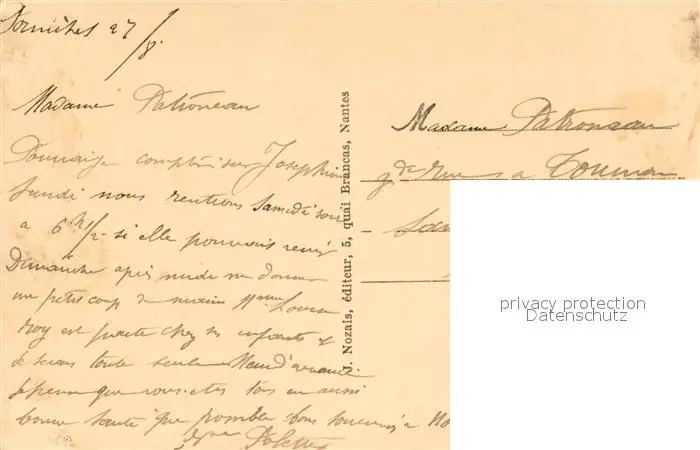 27/8
Madame Patroneau
compter sur Joséphine
Lundi nous rentrons Samedi soir
a 6h1/2 si elle pouvais venir
Dimanche après midi me donner
un petit coup de main Mme Louise
est partie chez ses enfants
je serais toute seule
Je pense que vous êtes tous en aussi
bonne santé que possible bons souvenirs a
J. Nozais, éditeur, 5, quai Brancas, Nantes
Madame Patroneau
gde rue a
privacy protection
Datenschutz